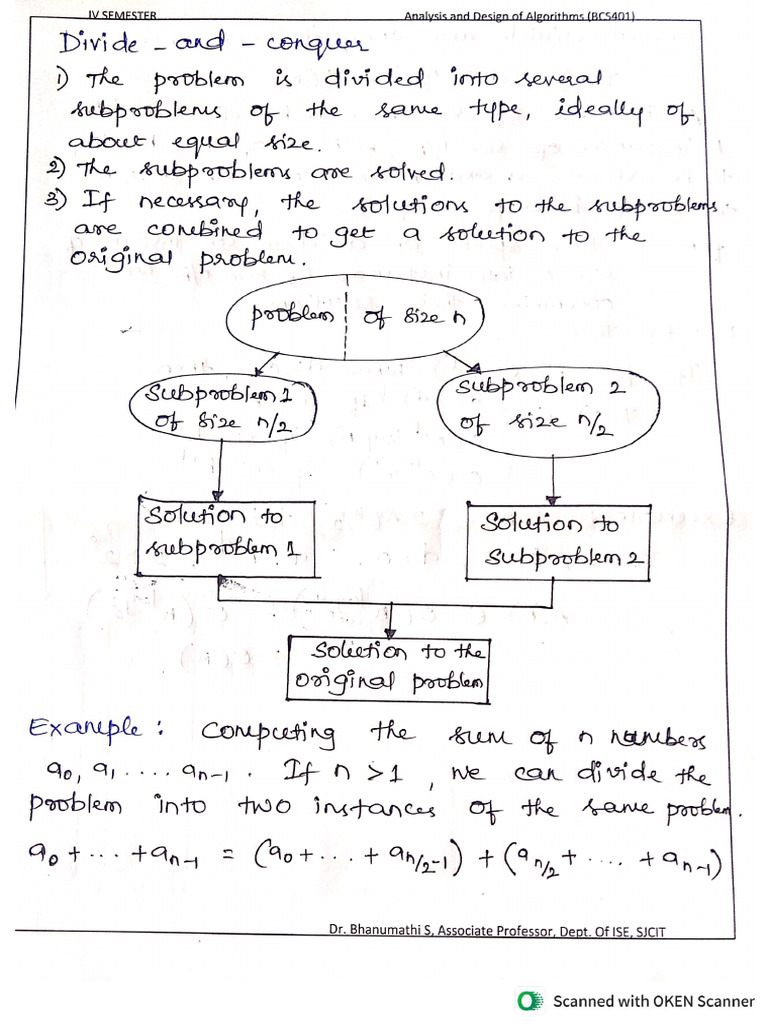 IV SEMESTER Analysis and Design of Algorithms (BCS401)
Divide - and - conquer
1) The problem is divided into several
subproblems of the same type, ideally of
about equal size.
2) The subproblems are solved.
3) If necessary, the solutions to the subproblems
are combined to get a solution to the
original problem.
problem of size n
Subproblem 1
of size n/2
Subproblem 2
of size n/2
Solution to
subproblem 1
Solution to
subproblem 2
Solution to the
original problem
Example: Computing the sum of n numbers
a₀, a₁ .... aₙ₋₁. If n > 1, we can divide the
problem into two instances of the same problem.
a₀ + ... + aₙ₋₁ = (a₀ + ... + a_{n/2-1}) + (a_{n/2} + .... + aₙ₋₁)
Dr. Bhanumathi S, Associate Professor, Dept. Of ISE, SJCIT
Scanned with OKEN Scanner